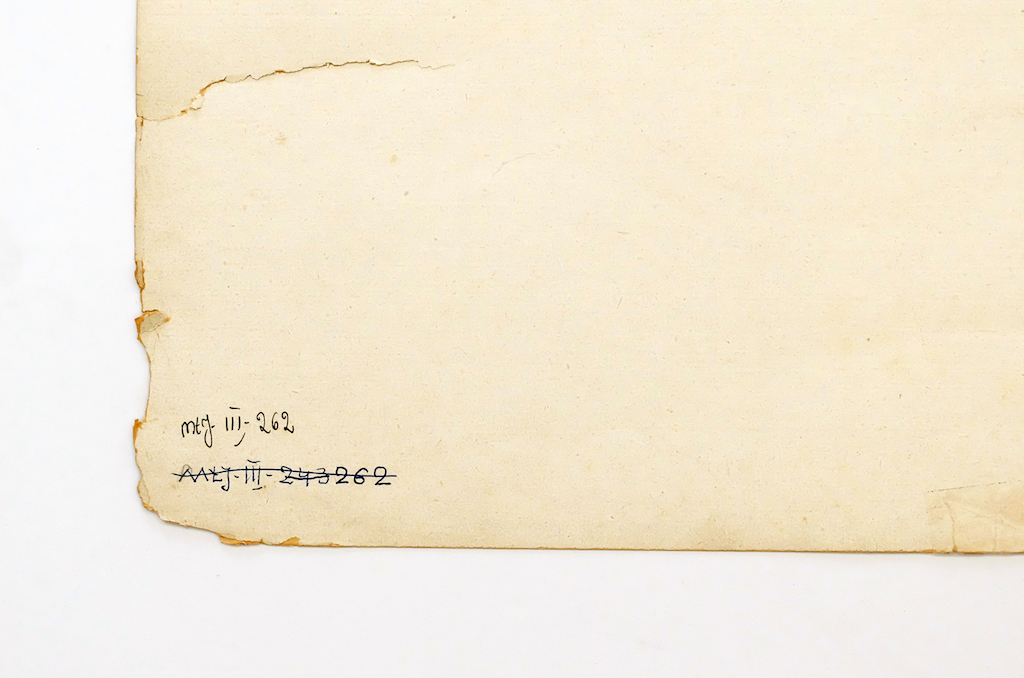 MŁJ-III-262
MŁJ-III-243262